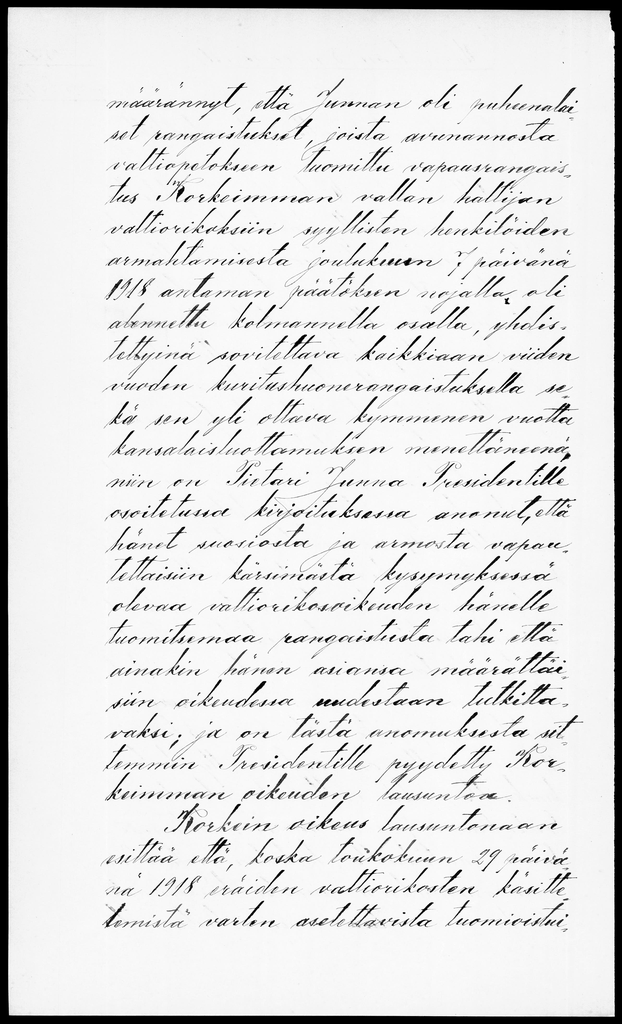 määrännyt, että Junnan oli puheenalai-
set rangaistukset, joista avunannosta
valtiopetokseen tuomittu vapausrangais-
tus Korkeimman vallan haltijan
valtiorikoksiin syyllisten henkilöiden
armahtamisesta joulukuun 7 päivänä
1918 antaman päätöksen nojalla oli
alennettu kolmannella osalla, yhdis-
tettyinä sovitettava kaikkiaan viiden
vuoden kuritushuonerangaistuksella se-
kä sen yli oltava kymmenen vuotta
kansalaisluottamuksen menettäneenä,
niin on Pietari Junna Presidentille
osoitetussa kirjoituksessa anonut, että
hänet suosiosta ja armosta vapau-
tettaisiin kärsimästä kysymyksessä
olevaa valtiorikosoikeuden hänelle
tuomitsemaa rangaistusta tahi että
ainakin hänen asiansa määrättäi-
siin oikeudessa uudestaan tutkitta-
vaksi; ja on tästä anomuksesta sit-
temmin Presidentille pyydetty Kor-
keimman oikeuden lausuntoa.
Korkein oikeus lausuntonaan
esittää että, koska toukokuun 29 päivä-
nä 1918 eräiden valtiorikosten käsitte-
lemistä varten asetettavista tuomioistui-